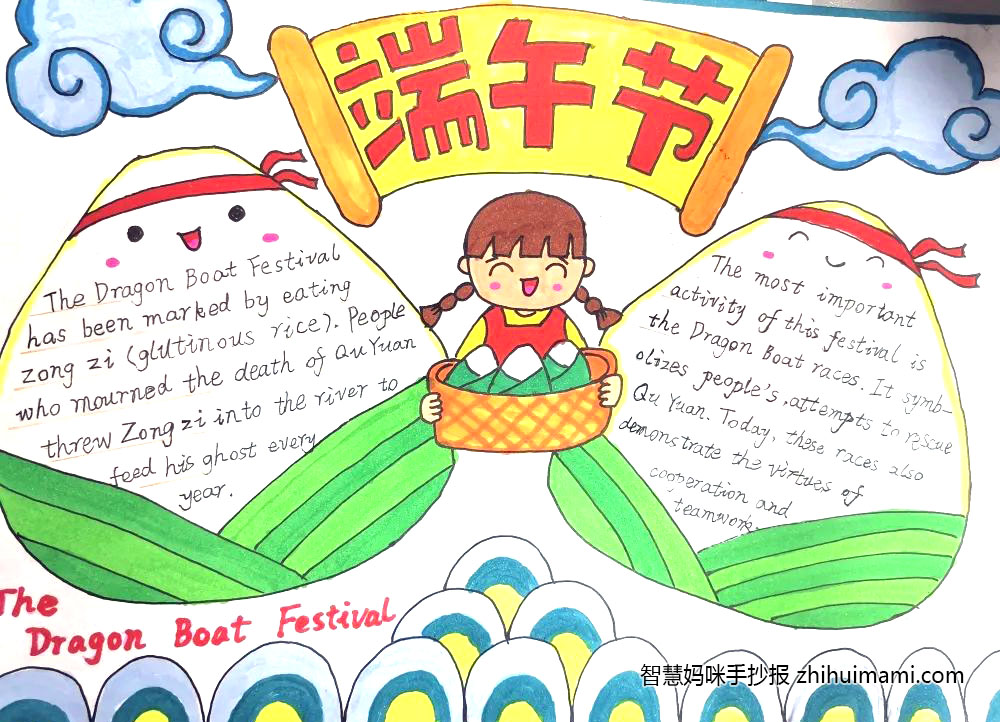 端午节
The Dragon Boat Festival
has been marked by eating
zong zi (glutinous rice). People
who mourned the death of Qu Yuan
threw Zong zi into the river to
feed his ghost every
year.
The most important
activity of this festival is
the Dragon Boat races. It symb-
olizes people's attempts to rescue
Qu Yuan. Today, these races also
demonstrate the virtues of
cooperation and
teamwork.
The
Dragon Boat Festival
智慧妈咪手抄报 zhihuimami.com